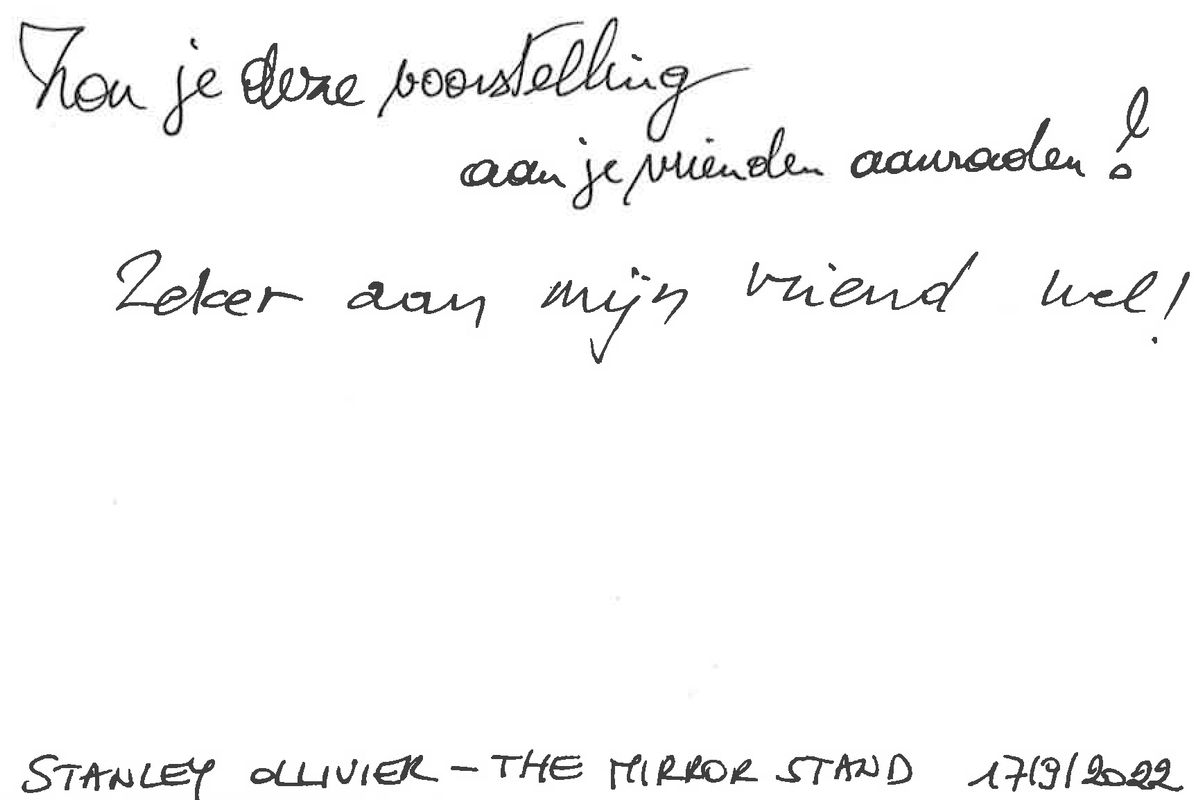 Zou je deze voorstelling
aan je vrienden aanraden?
Zeker aan mijn vriend wel!
STANLEY OLLIVIER - THE MIRROR STAND 17/9/2022